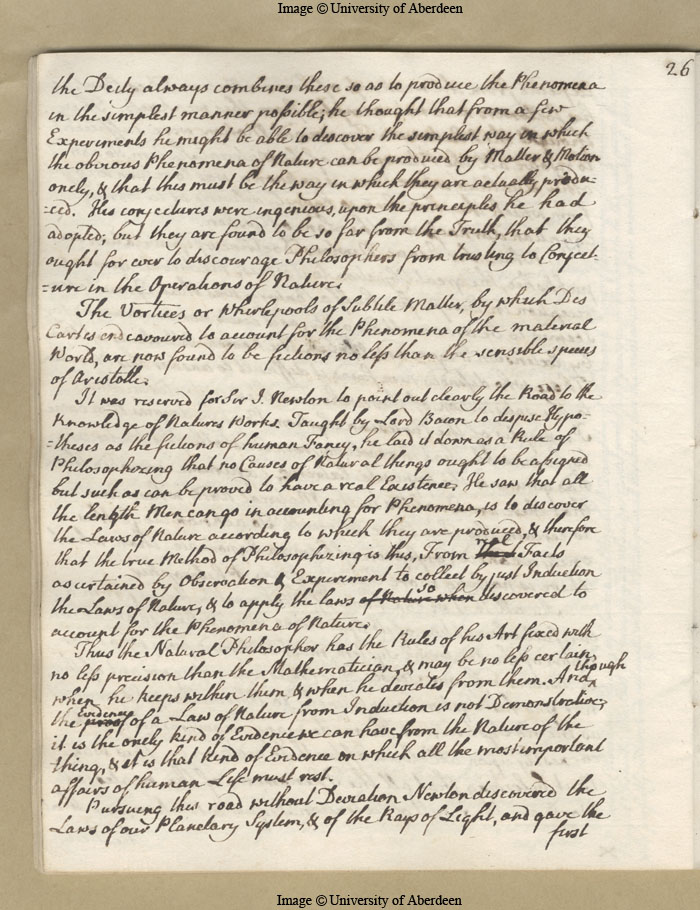 Image © University of Aberdeen
26
the Deity always combines these so as to produce the Phenomena
in the simplest manner possible; he thought that from a few
Experiments he might be able to discover the simplest way in which
the obvious Phenomena of Nature can be produced by Matter & Motion
onely, & that this must be the way in which they are actually produ-
-ced. His conjectures were ingenious, upon the principles he had
adopted; but they are found to be so far from the Truth, that they
ought for ever to discourage Philosophers from trusting to Conject-
-ure in the Operations of Nature.
The Vortices or Whirlepools of Subtile Matter, by which Des
Cartes endeavoured to account for the Phenomena of the material
World, are now found to be fictions no less than the sensible species
of Aristotle.
It was reserved for Sir I. Newton to point out clearly the Road to the
Knowledge of Natures Works. Taught by Lord Bacon to despise Hypo-
-theses as the fictions of human Fancy, he laid it down as a Rule of
Philosophizing that no Causes of Natural things ought to be assigned
but such as can be proved to have a real Existence. He saw that all
the length Men can go in accounting for Phenomena, is to discover
the Laws of Nature according to which they are produced, & therefore
that the true Method of Philosophizing is this, From real Facts
ascertained by Observation & Experiment to collect by just Induction
the Laws of Nature, & to apply the laws of Nature when so discovered to
account for the Phenomena of Nature.
Thus the Natural Philosopher has the Rules of his Art fixed with
no less precision than the Mathematician, & may be no less certain
when he keeps within them & when he deviates from them. And though
the proof Evidence of a Law of Nature from Induction is not Demonstrative;
it is the onely kind of Evidence we can have from the Nature of the
thing, & it is that kind of Evidence on which all the most important
affairs of human Life must rest.
Pursuing this road without Deviation Newton discovered the
Laws of our Planetary System, & of the Rays of Light, and gave the
first
Image © University of Aberdeen